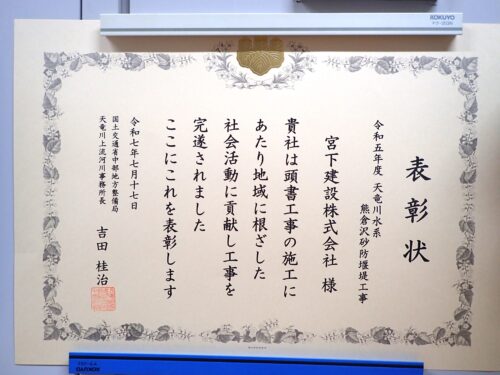 KOKUYO
表彰状
令和五年度 天竜川水系
熊倉沢砂防堰堤工事
宮下建設株式会社 様
貴社は頭書工事の施工に
あたり地域に根ざした
社会活動に貢献し工事を
完遂されました
ここにこれを表彰します
令和七年七月十七日
国土交通省中部地方整備局
天竜川上流河川事務所長
吉田 桂治